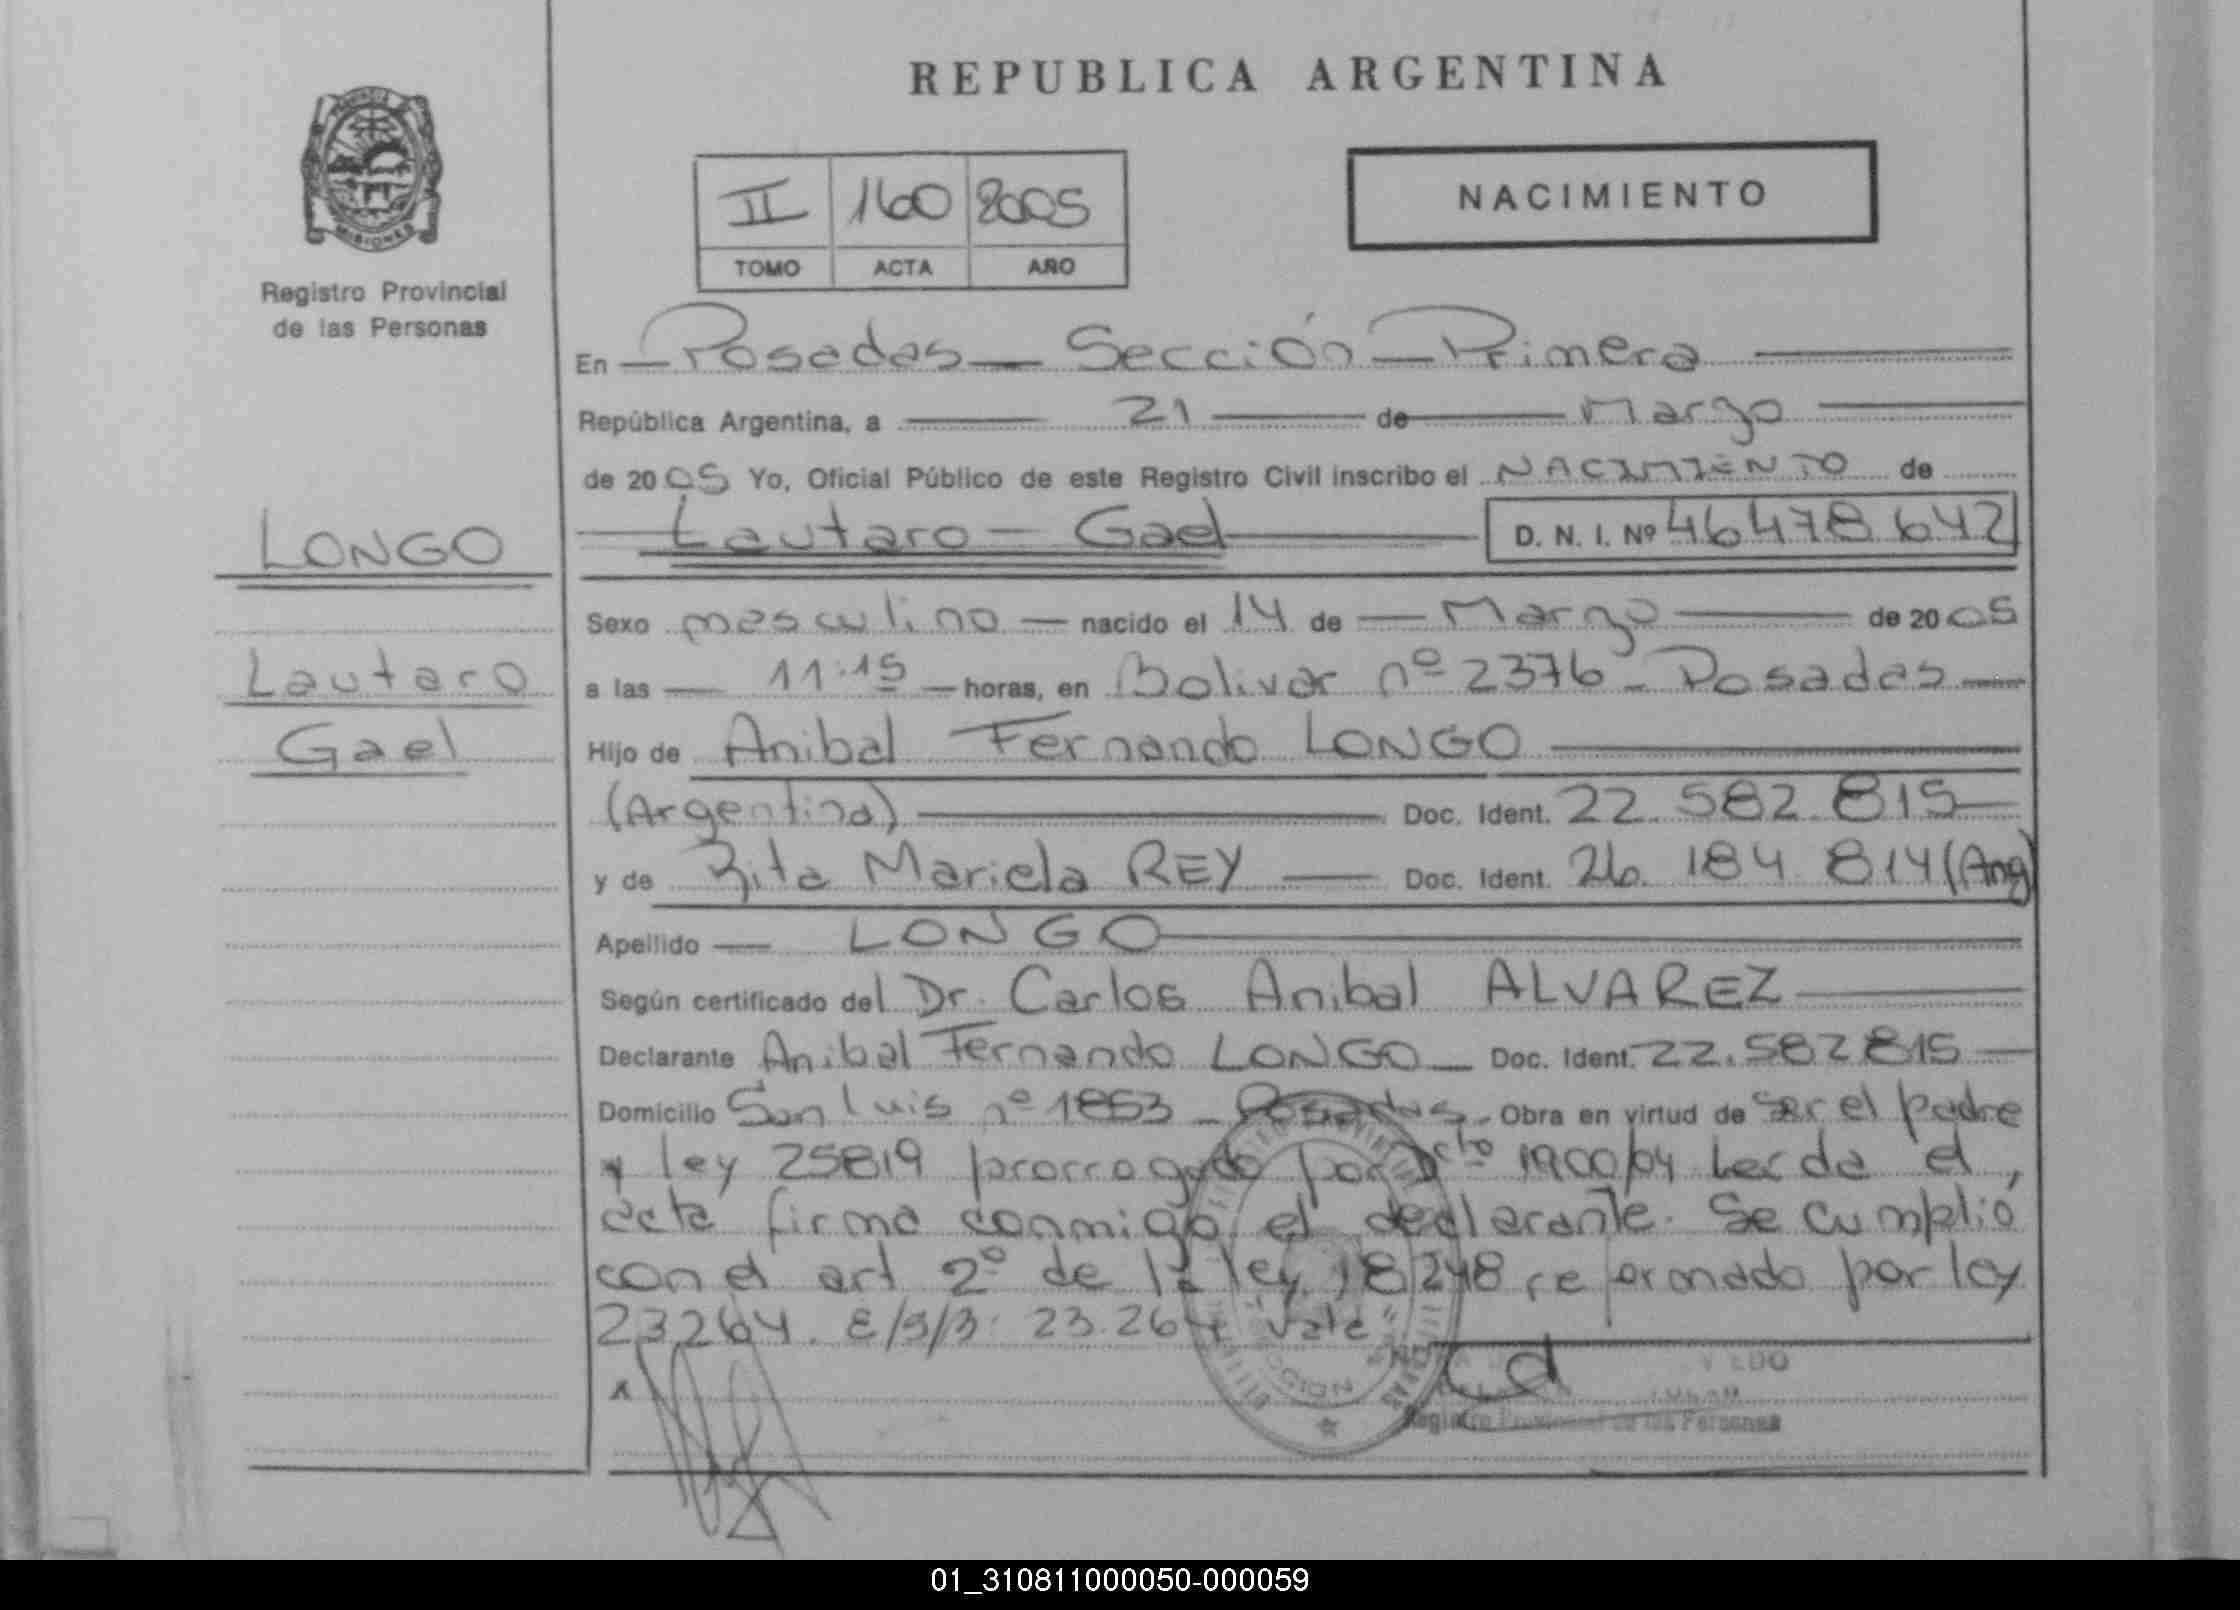 REPUBLICA ARGENTINA
MISIONES
Registro Provincial
de las Personas
II 160 2005
TOMO ACTA AÑO
NACIMIENTO
En Posadas Sección Primera
República Argentina, a 21 de Marzo
de 2005 Yo, Oficial Público de este Registro Civil inscribo el NACIMIENTO de
Lautaro Gael D. N. I. Nº 46478642
LONGO
Lautaro
Gael
Sexo masculino nacido el 14 de Marzo de 2005
a las 11:15 horas, en Bolivar nº 2376 - Posadas
Hijo de Anibal Fernando LONGO
(Argentina) Doc. Ident. 22.582.815
y de Rita Mariela REY Doc. Ident. 26.184.814 (Arg)
Apellido LONGO
Según certificado del Dr. Carlos Anibal ALVAREZ
Declarante Anibal Fernando LONGO Doc. Ident. 22.582815
Domicilio San Luis nº 1853 - Posadas Obra en virtud de ser el padre
y ley 25819 prorrogado por Dcto 1900/04 Leida el
acta firma conmigo el declarante. Se cumplió
con el art 2º de la ley 18248 reformado por ley
23264. E/S/3: 23.264 vale
x
Registro Provincial de las Personas
01_310811000050-000059